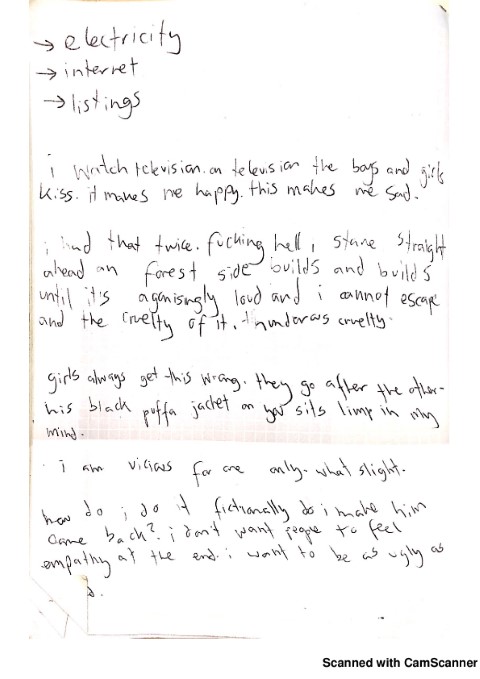 → electricity
→ internet
→ listings
i watch television. on television the boys and girls
kiss. it makes me happy. this makes me sad.
i had that twice. fucking hell, i stare straight
ahead on forest side builds and builds
until it's agonisingly loud and i cannot escape
and the cruelty of it. thunderous cruelty.
girls always get this wrong. they go after the other-
his black puffa jacket on you sits limp in my
mind.
i am vicious for one only. what slight.
how do i do it fictionally do i make him
come back? i don't want people to feel
empathy at the end. i want to be as ugly as
Scanned with CamScanner